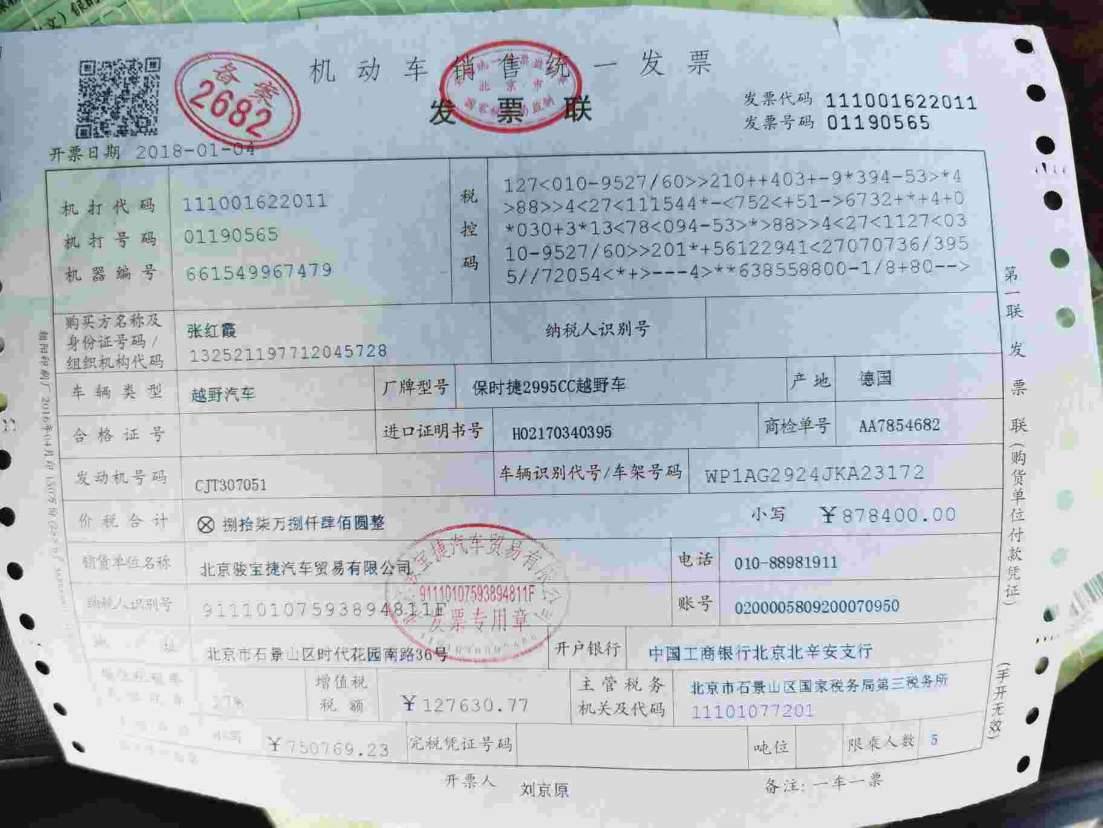 备案
2682
机动车销售统一发票
发票联
北京市
发票代码 111001622011
发票号码 01190565
开票日期 2018-01-04
机打代码 111001622011
机打号码 01190565
机器编号 661549967479
税控码
127<010-9527/60>>210++403+-9*394-53>*4
>88>>4<27<111544*-<752<+51->6732+*+4+0
*030+3*13<78<094-53>*>88>>4<27<1127<03
10-9527/60>>201*+56122941<27070736/395
5//72054<*+>---4>**638558800-1/8+80-->
购买方名称及身份证号码/组织机构代码 张红霞
132521197712045728
纳税人识别号
车辆类型 越野汽车 厂牌型号 保时捷2995CC越野车 产地 德国
合格证号 进口证明书号 H02170340395 商检单号 AA7854682
发动机号码 CJT307051 车辆识别代号/车架号码 WP1AG2924JKA23172
价税合计 ⊗ 捌拾柒万捌仟肆佰圆整 小写 ￥878400.00
销货单位名称 北京骏宝捷汽车贸易有限公司 电话 010-88981911
纳税人识别号 91110107593894811F 账号 0200005809200070950
地址 北京市石景山区时代花园南路36号 开户银行 中国工商银行北京北辛安支行
17% 增值税税额 ￥127630.77 主管税务机关及代码 北京市石景山区国家税务局第三税务所
11101077201
小写 ￥750769.23 完税凭证号码 吨位 限乘人数 5
开票人 刘京原 备注: 一车一票
宝捷汽车贸易有限公司
91110107593894811F
发票专用章
第一联 发票联(购货单位付款凭证)
(手开无效)